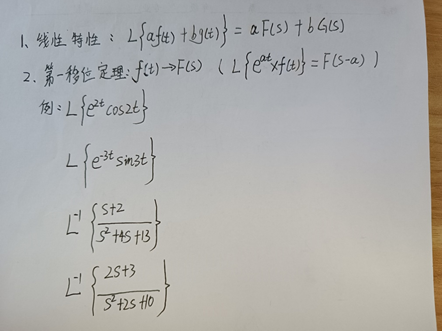 1、线性特性：L{af(t)+bg(t)}=aF(s)+bG(s)
2、第一移位定理：f(t)→F(s) （L{e^{at}×f(t)}=F(s-a)）
例：L{e^{2t}cos2t}
L{e^{-3t}sin3t}
L^{-1}{\frac{s+2}{s^2+4s+13}}
L^{-1}{\frac{2s+3}{s^2+2s+10}}